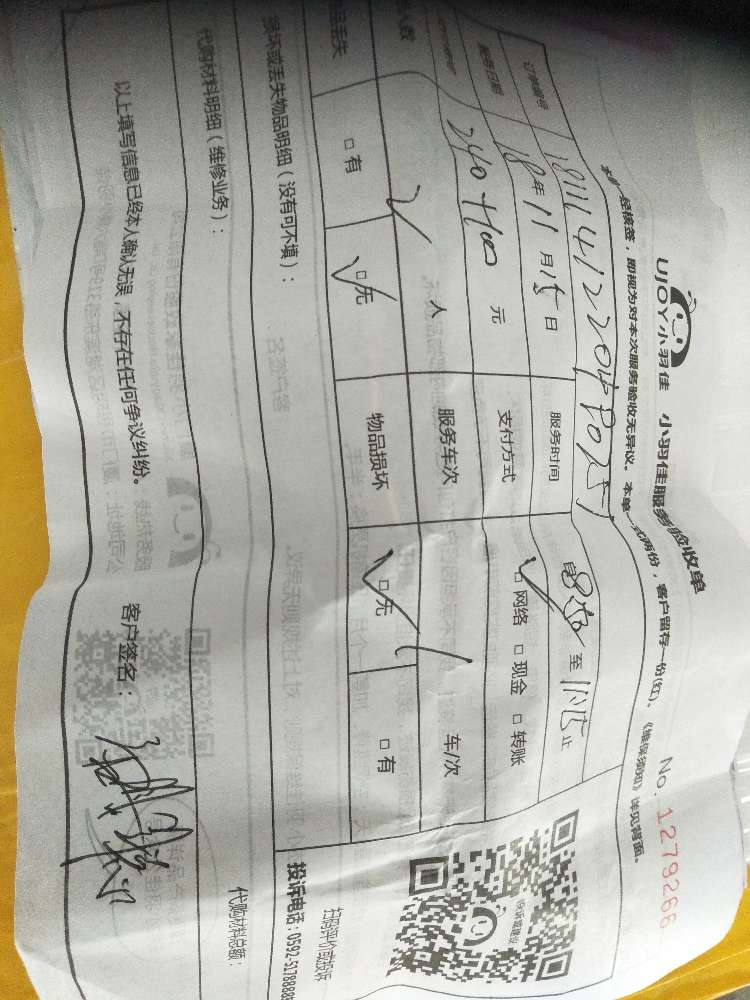 UJOY小羽佳 小羽佳服务验收单
No. 1279266
经核签，即视为对本次服务验收无异议。本单一式两份，客户留存一份(红)。《维保须知》详见背面。
订单编号
服务日期 18年11月15日 服务时间 至11:15止
240+100元 支付方式 □网络 □现金 □转账
人数 人 服务车次 车/次
丢失 □有 □无 物品损坏 □无 □有
损坏或丢失物品明细（没有可不填）：
扫码评价或投诉
投诉电话：0592-5178888
代购材料明细（维修业务）：
代购材料总额：
以上填写信息已经本人确认无误，不存在任何争议纠纷。 客户签名：